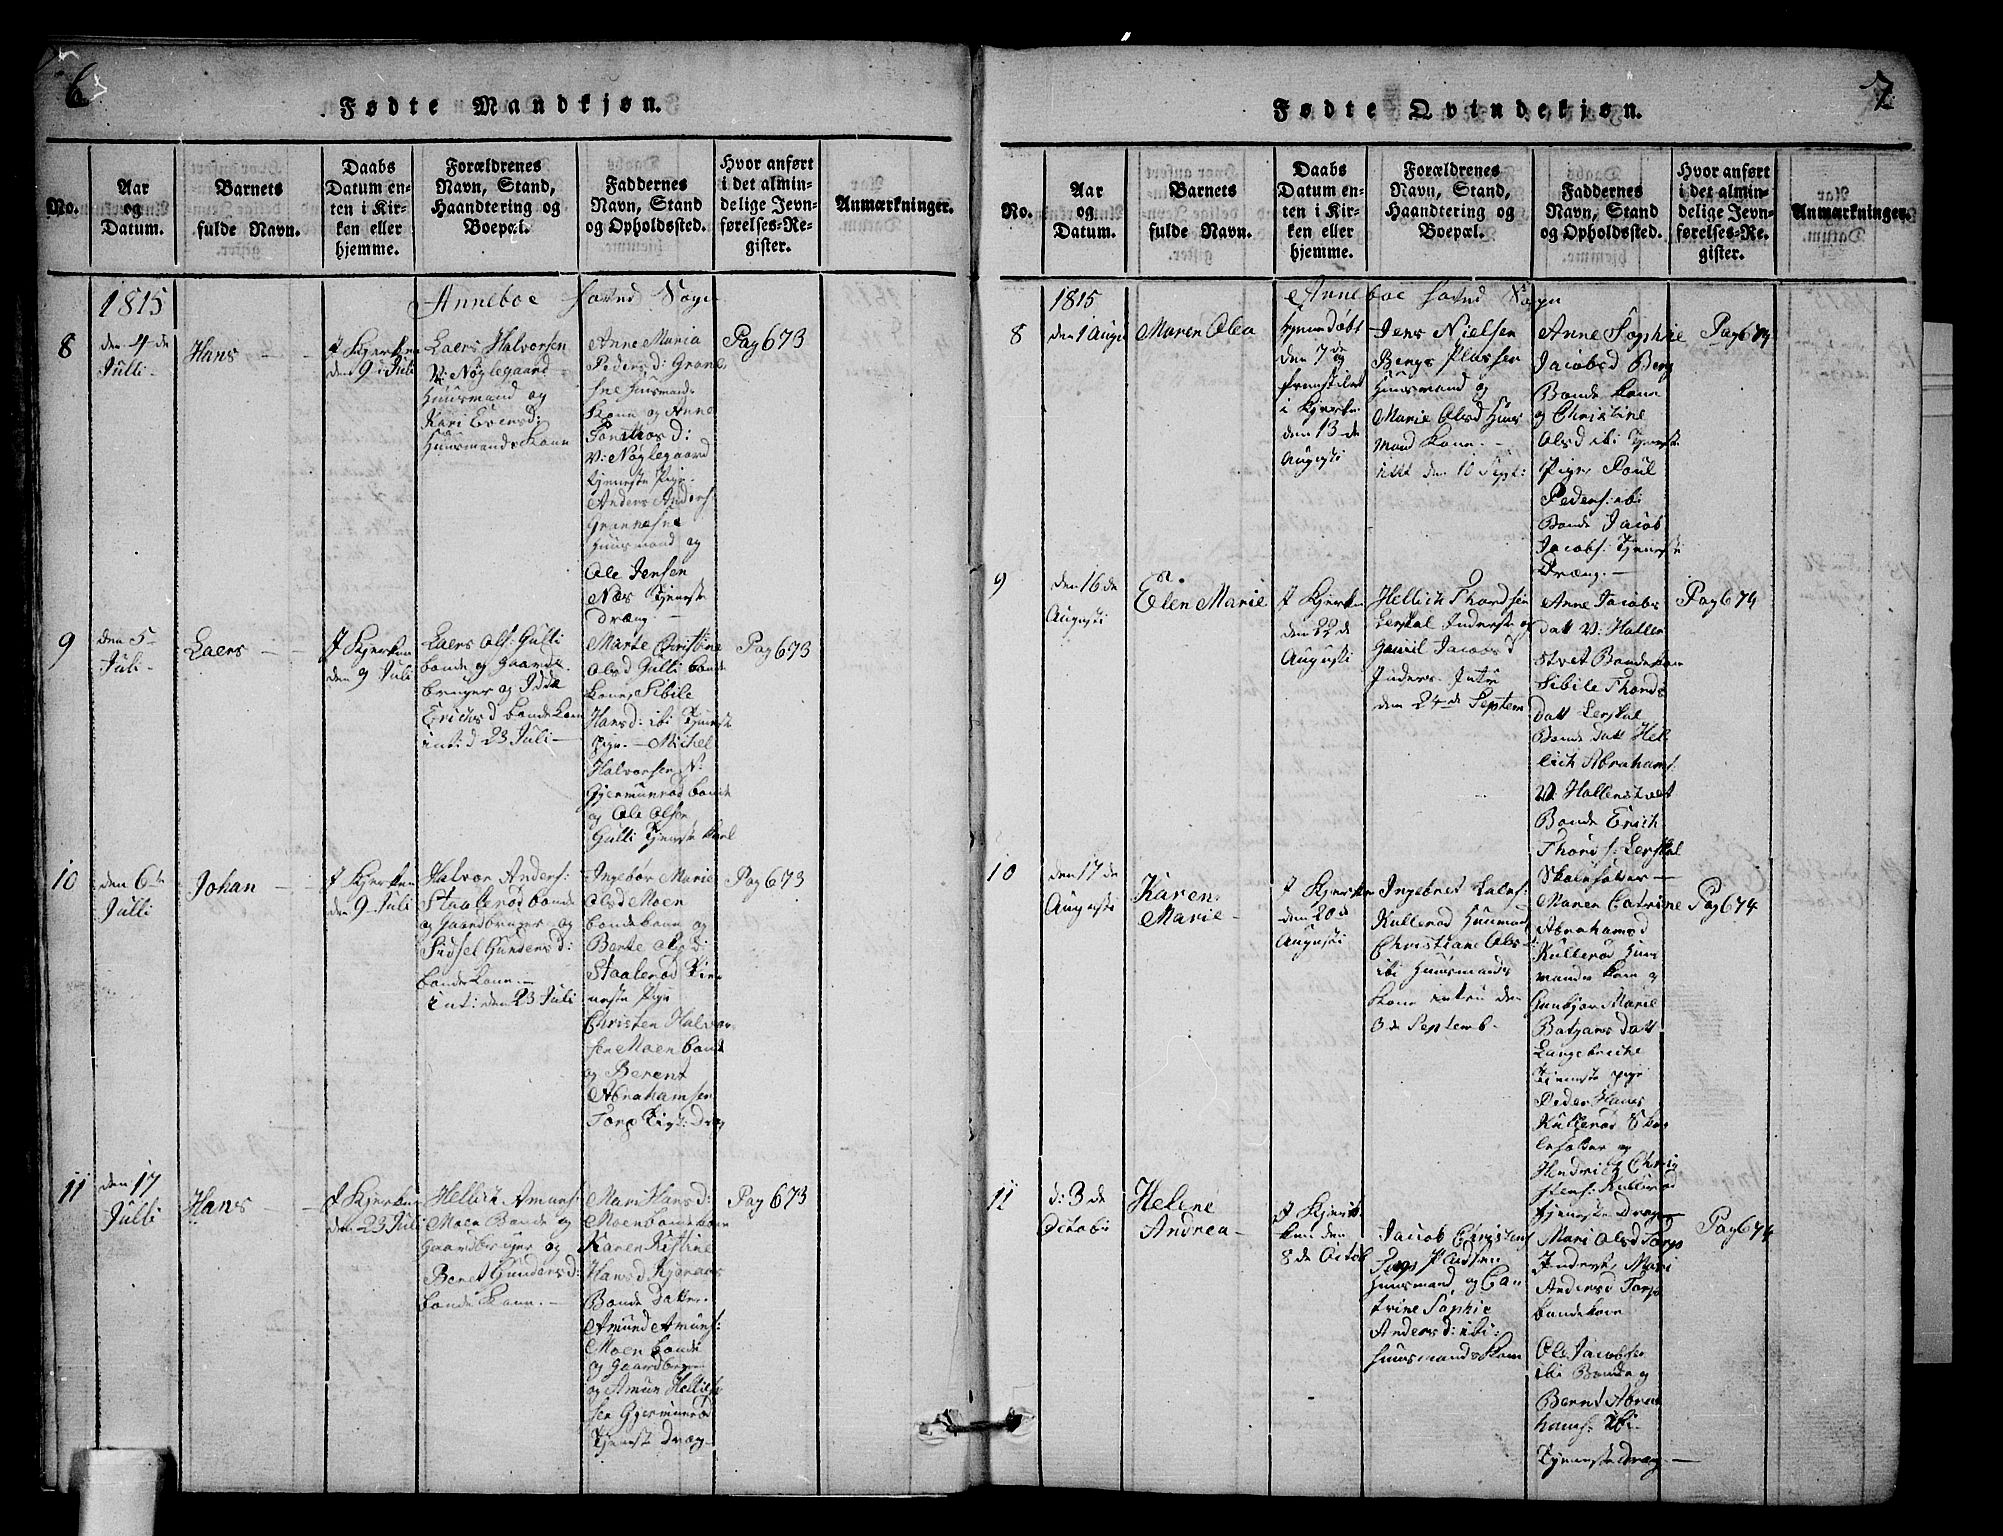 6
Fødte Mandkjøn.
No.
Aar
og
Datum.
Barnets
fulde Navn.
Daabs
Datum en-
ten i Kir-
ken eller
hjemme.
Forældrenes
Navn, Stand,
Haandtering og
Boepæl.
Faddernes
Navn, Stand
og Opholdssted.
Hvor anført
i det almin-
delige Jevn-
førelses-Re-
gister.
Anmærkninger.
1815
Anneboe Sogn
8
den 4de
Julli
Hans
I Kjerken
den 9 Juli
Laers Halvorsen
V: Nøglegaard
Huusmand og
Kari Evensd:
Huusmands Kone
Anne Maria
Pedersd:
Huusmands
Kone og Anne
V: Nøglegaard
tjeneste Pige
Anders Anders:
Huusmand og
Ole Jensen
Næs Tjeneste
dræng.
Pag 673
9
den 5
Juli
Laers
I Kjerken
den 9 Juli
Laers Ols: Gulli
bonde og Gaard
bruger og Idde
Ericksd bonde Kone
int: d 23 Juli
Marte Christine
Olsd Gulli bonde
Kone, Sibile
Hansd: ibi Tjeneste
Pige. Michel
Halvorsen N:
Gjermunrød bonde
og Ole Olsen
Gulli Tjeneste Karl
Pag 673
10
den 6te
Julli
Johan
I Kjerken
den 9 Juli
Halvor Anders:
Staalerød bonde
og Gaardbruger og
Sidsel Gundersd:
bonde Kone
int: den 23 Juli
Ingebor Marie
Olsd Moen
bondekone og
Berte Olsd:
Staalerød Tie-
neste Pige
Christen Halvor
sen Moen bonde
og Berent
Abrahamsen
Torp
Pag 673
11
den 17
Julli
Hans
I Kjerken
den 23 Juli
Hellich Amuns:
Moen Bonde og
Gaardbruger og
Beret Gundersd:
bonde Kone.
Mari Hansd:
Moen bondekone
Karen Kistine
Hansd Kjeraas
Bonde Datter.
Amund Amuns:
Moen bonde
og Gaardbruger
og Amun Hellich
sen Gjermunrød
Tjeneste Dræng
Pag 673
7
Fødte Qvindekjøn.
No.
Aar
og
Datum.
Barnets
fulde Navn.
Daabs
Datum en-
ten i Kir-
ken eller
hjemme.
Forældrenes
Navn, Stand,
Haandtering og
Boepæl.
Faddernes
Navn, Stand
og Opholdssted.
Hvor anført
i det almin-
delige Jevn-
førelses-Re-
gister.
Anmærkninger.
1815
Anneboe Sogn
8
den 1 Augu
Maren Olea
Hjemdøbt
den 7de
og
fremstilet
i Kjerken
den 13de
Augusti
Jens Nielsen
Bergs Pladsen
Huusmand og
Marie Olsd Huus
mand Kone.
den 10 Sept:
Anne Sophie
Jacobsd Berg
Bonde Kone
og Christine
Olsd ibi Tjeneste
Pige, Poul
Peders: ibi
Bonde Jacob
Jacobs: Tjeneste
Dræng.
Pag 674
9
den 16de
Augusti
Elen Marie
I Kjerken
den 22de
Augusti
Hellich Thordsen
Lerskal Inderste og
Jacobsd
Inders. Intr
den 24de Septem
Anne Jacobs
datt V: Hallen
stvet Bondekone
Sibile Thords
datt Lerskal
Bonde datt Hel
lich Abrahams
V: Hallenstvet
Bonde Erich
Thords: Lerskal
Skoleholder
Pag 674
10
den 17de
Augusti
Karen
Marie
I Kjerken
den 20d
Augusti
Ingebret
Kullerød Huusmand
Christiane Ols-
ibi Huusmands
Kone intru den
3de Septemb.
Maren Catrine
Abrahamsd
Kullerød Huus
mands Kone og
Gunbjør Marie
datt
Langebreche
Tjeneste pige
Peder Hans
Kullerød Sko-
leholder og
Hendrich Chris
stens: Kullerød
Tjeneste Dræng
Pag 674
11
d: 3de
Octobr
Helene
Andrea
I Kjerk
ken den
8de Octob
Jacob Christens
Pladsen
Huusmand, og Ca-
trine Sophie
Andersd: ibi:
Huusmands Kone
Mari Olsd Torp
Inderste, Mari
Andersd Torp
bondekone
Ole Jacobsen
ibi Bonde og
Bernt Abra
hams: ibi
Tjenestedræng
Pag 674